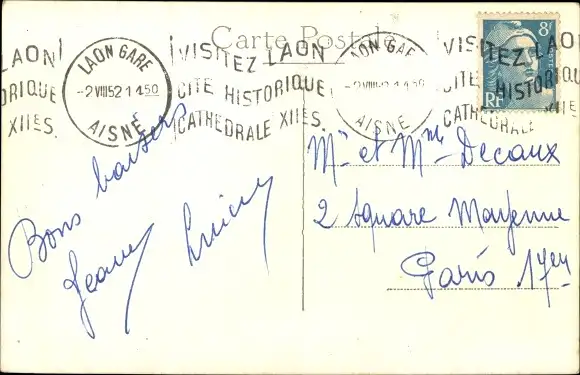 Carte Postale
LAON
ORIQUE
XIIES.
LAON GARE
-2 VIII 52 1450
AISNE
VISITEZ LAON
CITE HISTORIQUE
CATHEDRALE XIIES.
LAON GARE
-2 VIII 52 1450
AISNE
VISITEZ LAON
CITE HISTORIQUE
CATHEDRALE XIIES
8F
RF
Bons baisers
Jeanne
Mr et Mme Decaux
2 Square Mayenne
Paris 17em